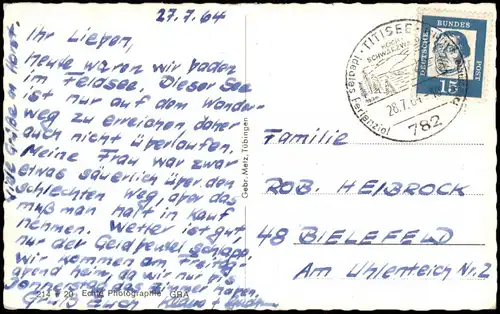 27.7.64
Ihr Lieben,
Heute waren wir baden
im Feldsee. Dieser See
ist nur auf dem Wander-
weg zu erreichen daher
auch nicht überlaufen.
Meine Frau war zwar
etwas säuerlich über den
schlechten Weg, aber das
muß man halt in Kauf
nehmen. Wetter ist gut
nur der Geldbeutel schlapp.
Wir kommen am Freitag
abend heim, da wir nur bis
Donnerstag das Zimmer haben.
Gruß Euch Klaus +
Viele Grüße a. Horst.
214 29 Echte Photographie GRA
Gebr. Metz, Tübingen
TITISEE
HOCH
SCHWARZWALD
Ideales Ferienziel
28.7.64
782
DEUTSCHE BUNDES POST
15
Familie
ROB. HEIBROCK
48 BIELEFELD
Am Uhlenteich Nr. 2